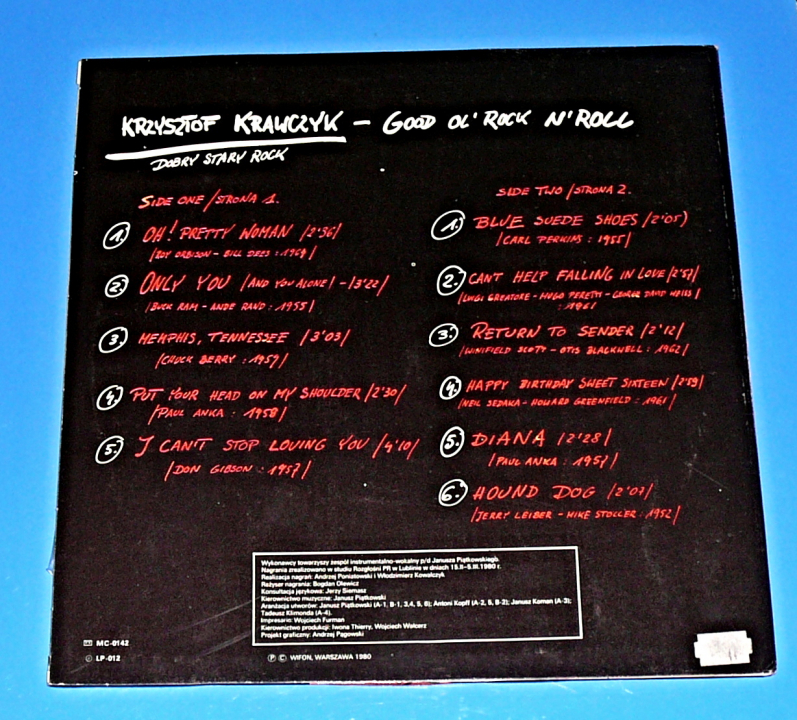 KRZYSZTOF KRAWCZYK – GOOD OL' ROCK N' ROLL
DOBRY STARY ROCK
SIDE ONE /STRONA 1.
1. OH! PRETTY WOMAN /2'36/
/ROY ORBISON – BILL DEES : 1964/
2. ONLY YOU /AND YOU ALONE/ – /3'22/
/BUCK RAM – ANDE RAND : 1955/
3. MEMPHIS, TENNESSEE /3'03/
/CHUCK BERRY : 1959/
4. PUT YOUR HEAD ON MY SHOULDER /2'30/
/PAUL ANKA : 1958/
5. I CAN'T STOP LOVING YOU /4'10/
/DON GIBSON : 1957/
SIDE TWO /STRONA 2.
1. BLUE SUEDE SHOES /2'05/
/CARL PERKINS : 1955/
2. CAN'T HELP FALLING IN LOVE /2'57/
/LUIGI CREATORE – HUGO PERETTI – GEORGE DAVID WEISS/
: 1961/
3. RETURN TO SENDER /2'12/
/WINIFIELD SCOTT – OTIS BLACKWELL : 1962/
4. HAPPY BIRTHDAY SWEET SIXTEEN /2'59/
/NEIL SEDAKA – HOWARD GREENFIELD : 1961/
5. DIANA /2'28/
/PAUL ANKA : 1957/
6. HOUND DOG /2'07/
/JERRY LEIBER – MIKE STOLLER : 1952/
Wykonawcy towarzyszy zespół instrumentalno-wokalny p/d Janusza Piątkowskiego.
Nagrania zrealizowano w studiu Rozgłośni PR w Lublinie w dniach 15.II–5.III.1980 r.
Realizacja nagrań: Andrzej Poniatowski i Włodzimierz Kowalczyk
Reżyser nagrania: Bogdan Olewicz
Konsultacja językowa: Jerzy Siemasz
Kierownictwo muzyczne: Janusz Piątkowski
Aranżacja utworów: Janusz Piątkowski (A-1, B-1, 3,4, 5, 6); Antoni Kopff (A-2, 5, B-2); Janusz Koman (A-3);
Tadeusz Klimonda (A-4).
Impresario: Wojciech Furman
Kierownictwo produkcji: Iwona Thierry, Wojciech Walcerz
Projekt graficzny: Andrzej Pągowski
MC-0142
LP-012
Ⓟ © WIFON, WARSZAWA 1980